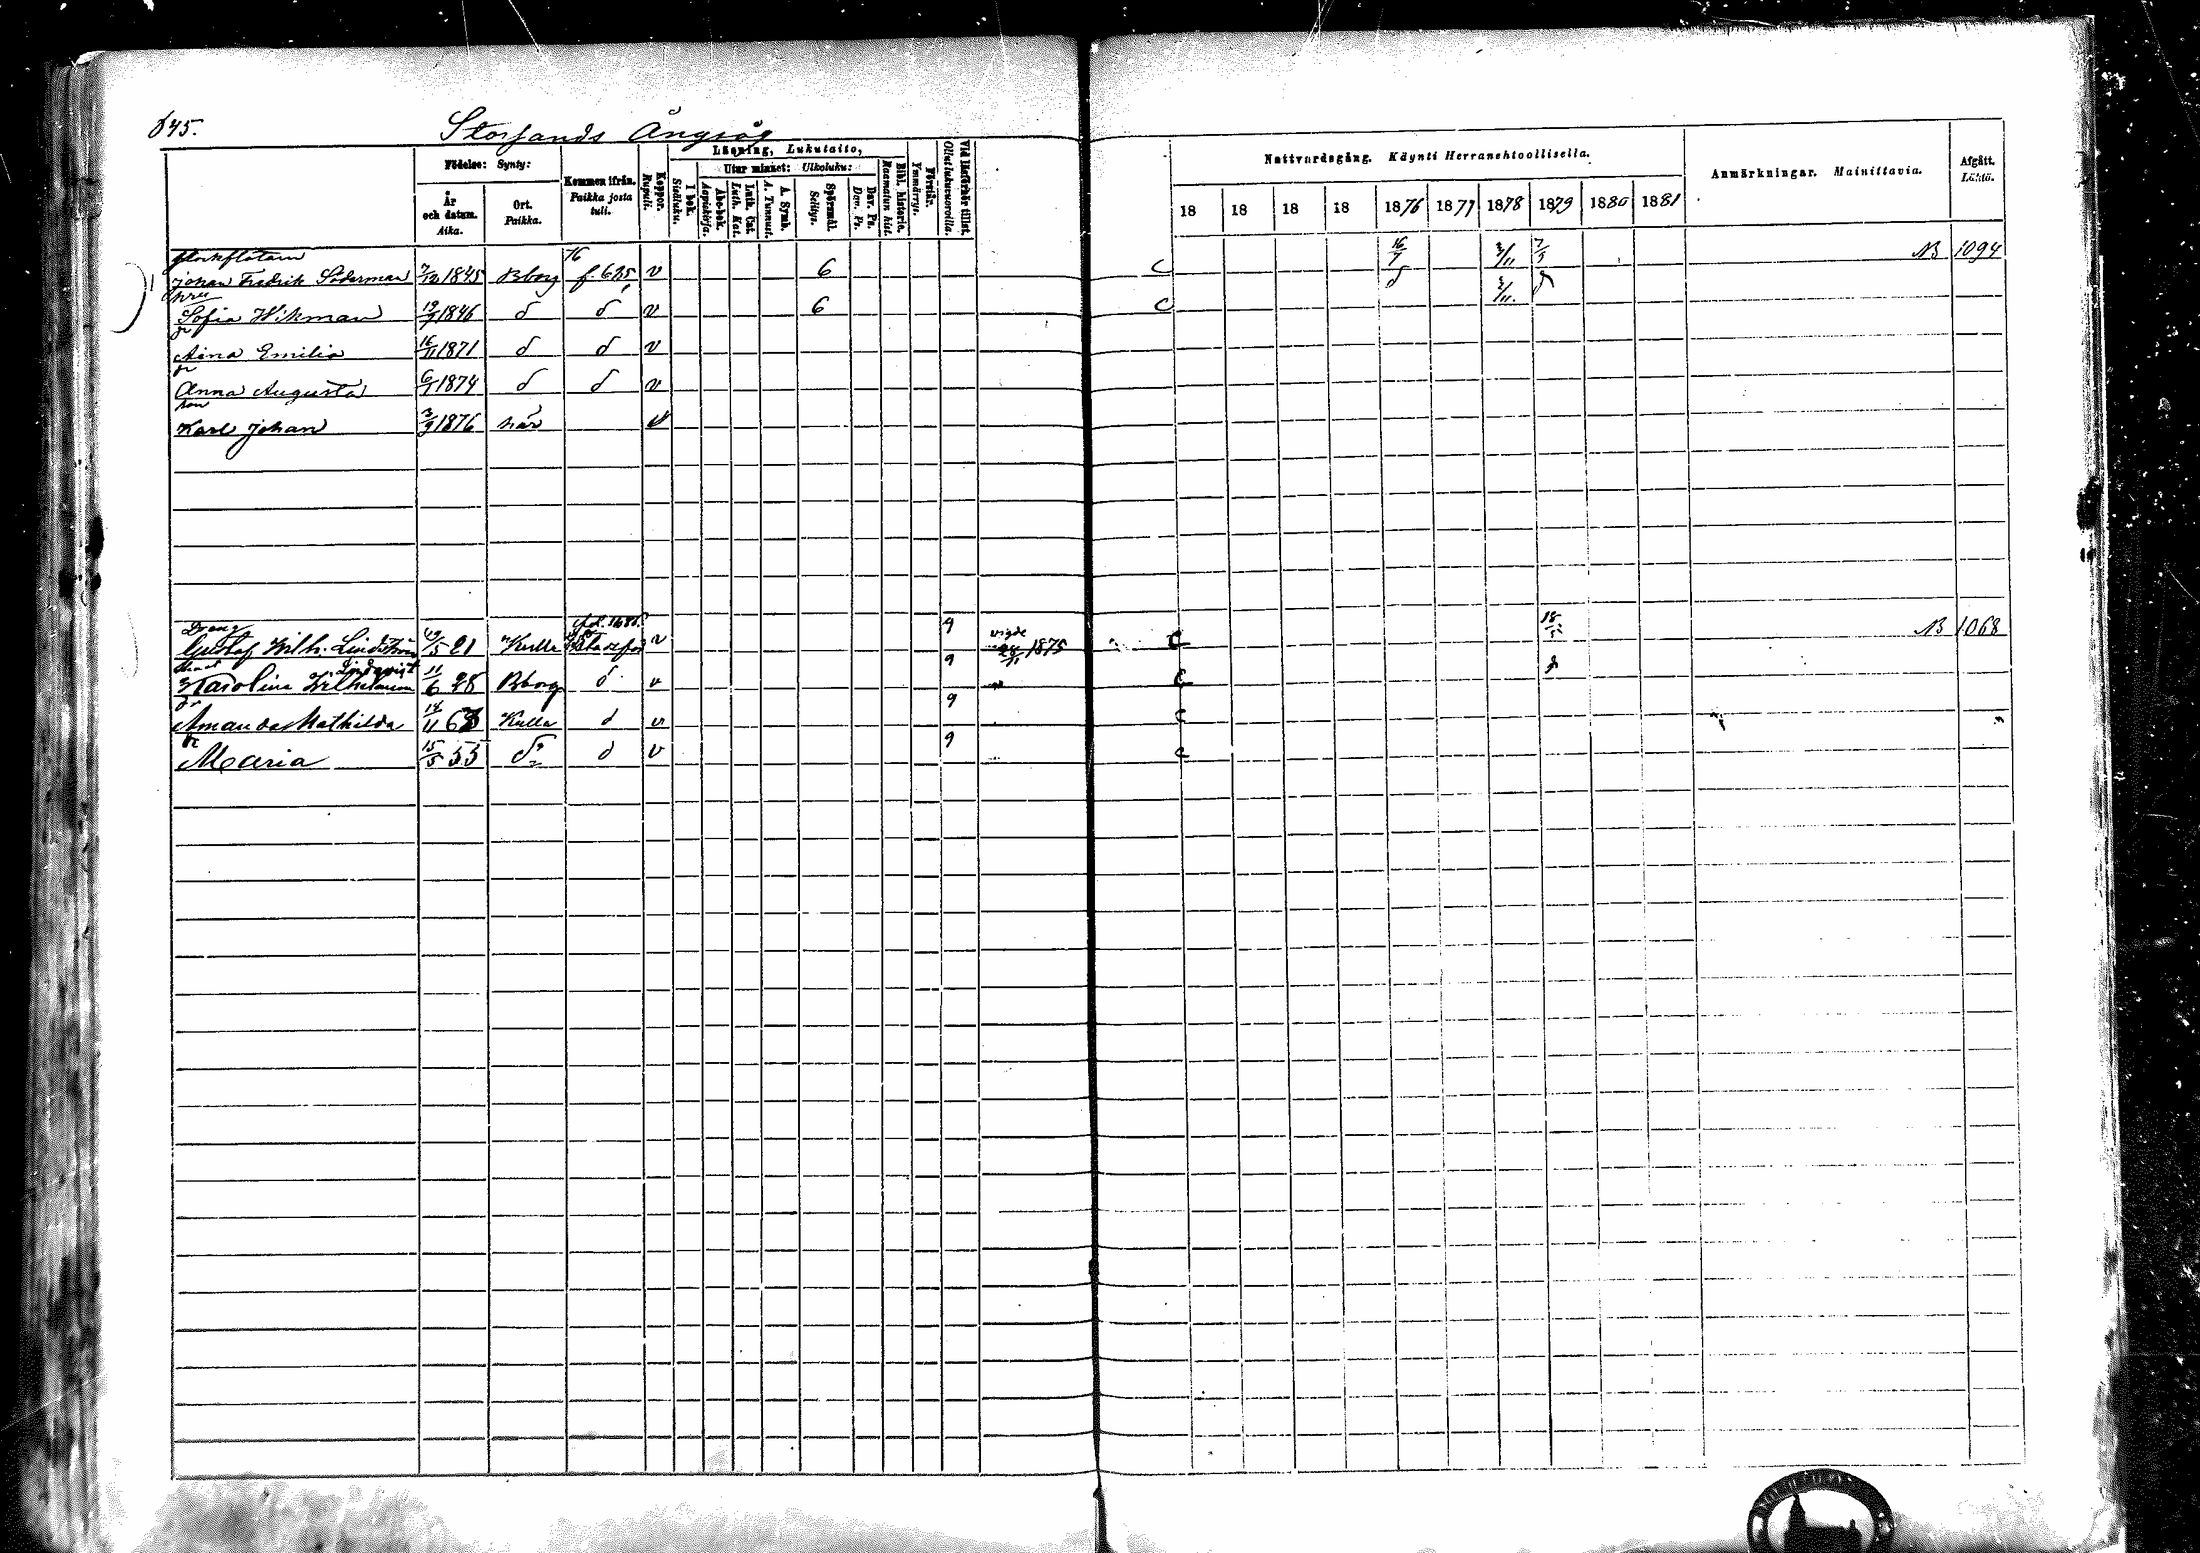 645.
Storsands Ångsåg
Födelse: Synty:
År och datum. Aika.
Ort. Paikka.
Kommen ifrån. Paikka josta tuli.
Koppor. Rupuli.
Läsning, Lukutaito,
I bok. Sisäluku.
Utur minnet: Ulkoluku:
Abc-bok. Aapiskirja.
Luth. Cat. Luth. Kat.
A. Symb. A. Tunnust.
Spörsmål. Selitys.
Dav. Ps. Dav. Ps.
Bibl. historia. Raamatun hist.
Förstår. Ymmärrys.
Vid läsförhör tillst. Ollut lukuvuorolla.
Nattvardsgång. Käynti Herranehtoollisella.
18 18 18 18 1876 1877 1878 1879 1880 1881
Anmärkningar. Mainittavia.
Afgått. Lähtö.
76
Johan Fredrik Söderman 7/12 1845 Bborg f. 625 v 6 C 16/7 2/11 7/5 NB 1094
Sofia Wikman 19/9 1846 d d v 6 C d 2/11.
dr
Aina Emilia 16/11 1871 d d v
dr
Anna Augusta 6/1 1874 d d v
son
Karl Johan 3/9 1876 här v
Dreng
Gustaf Wilh. Lindström 21 Kulla v 9 vigde 1875 C 18/5 NB 1068
Lindqvist
Karolina Wilhelmina 11/6 28 Bborg d v 9 C
dr
Amanda Mathilda 14/11 63 Kulla d v 9 C
dr
Maria 15/5 55 do d v 9 C